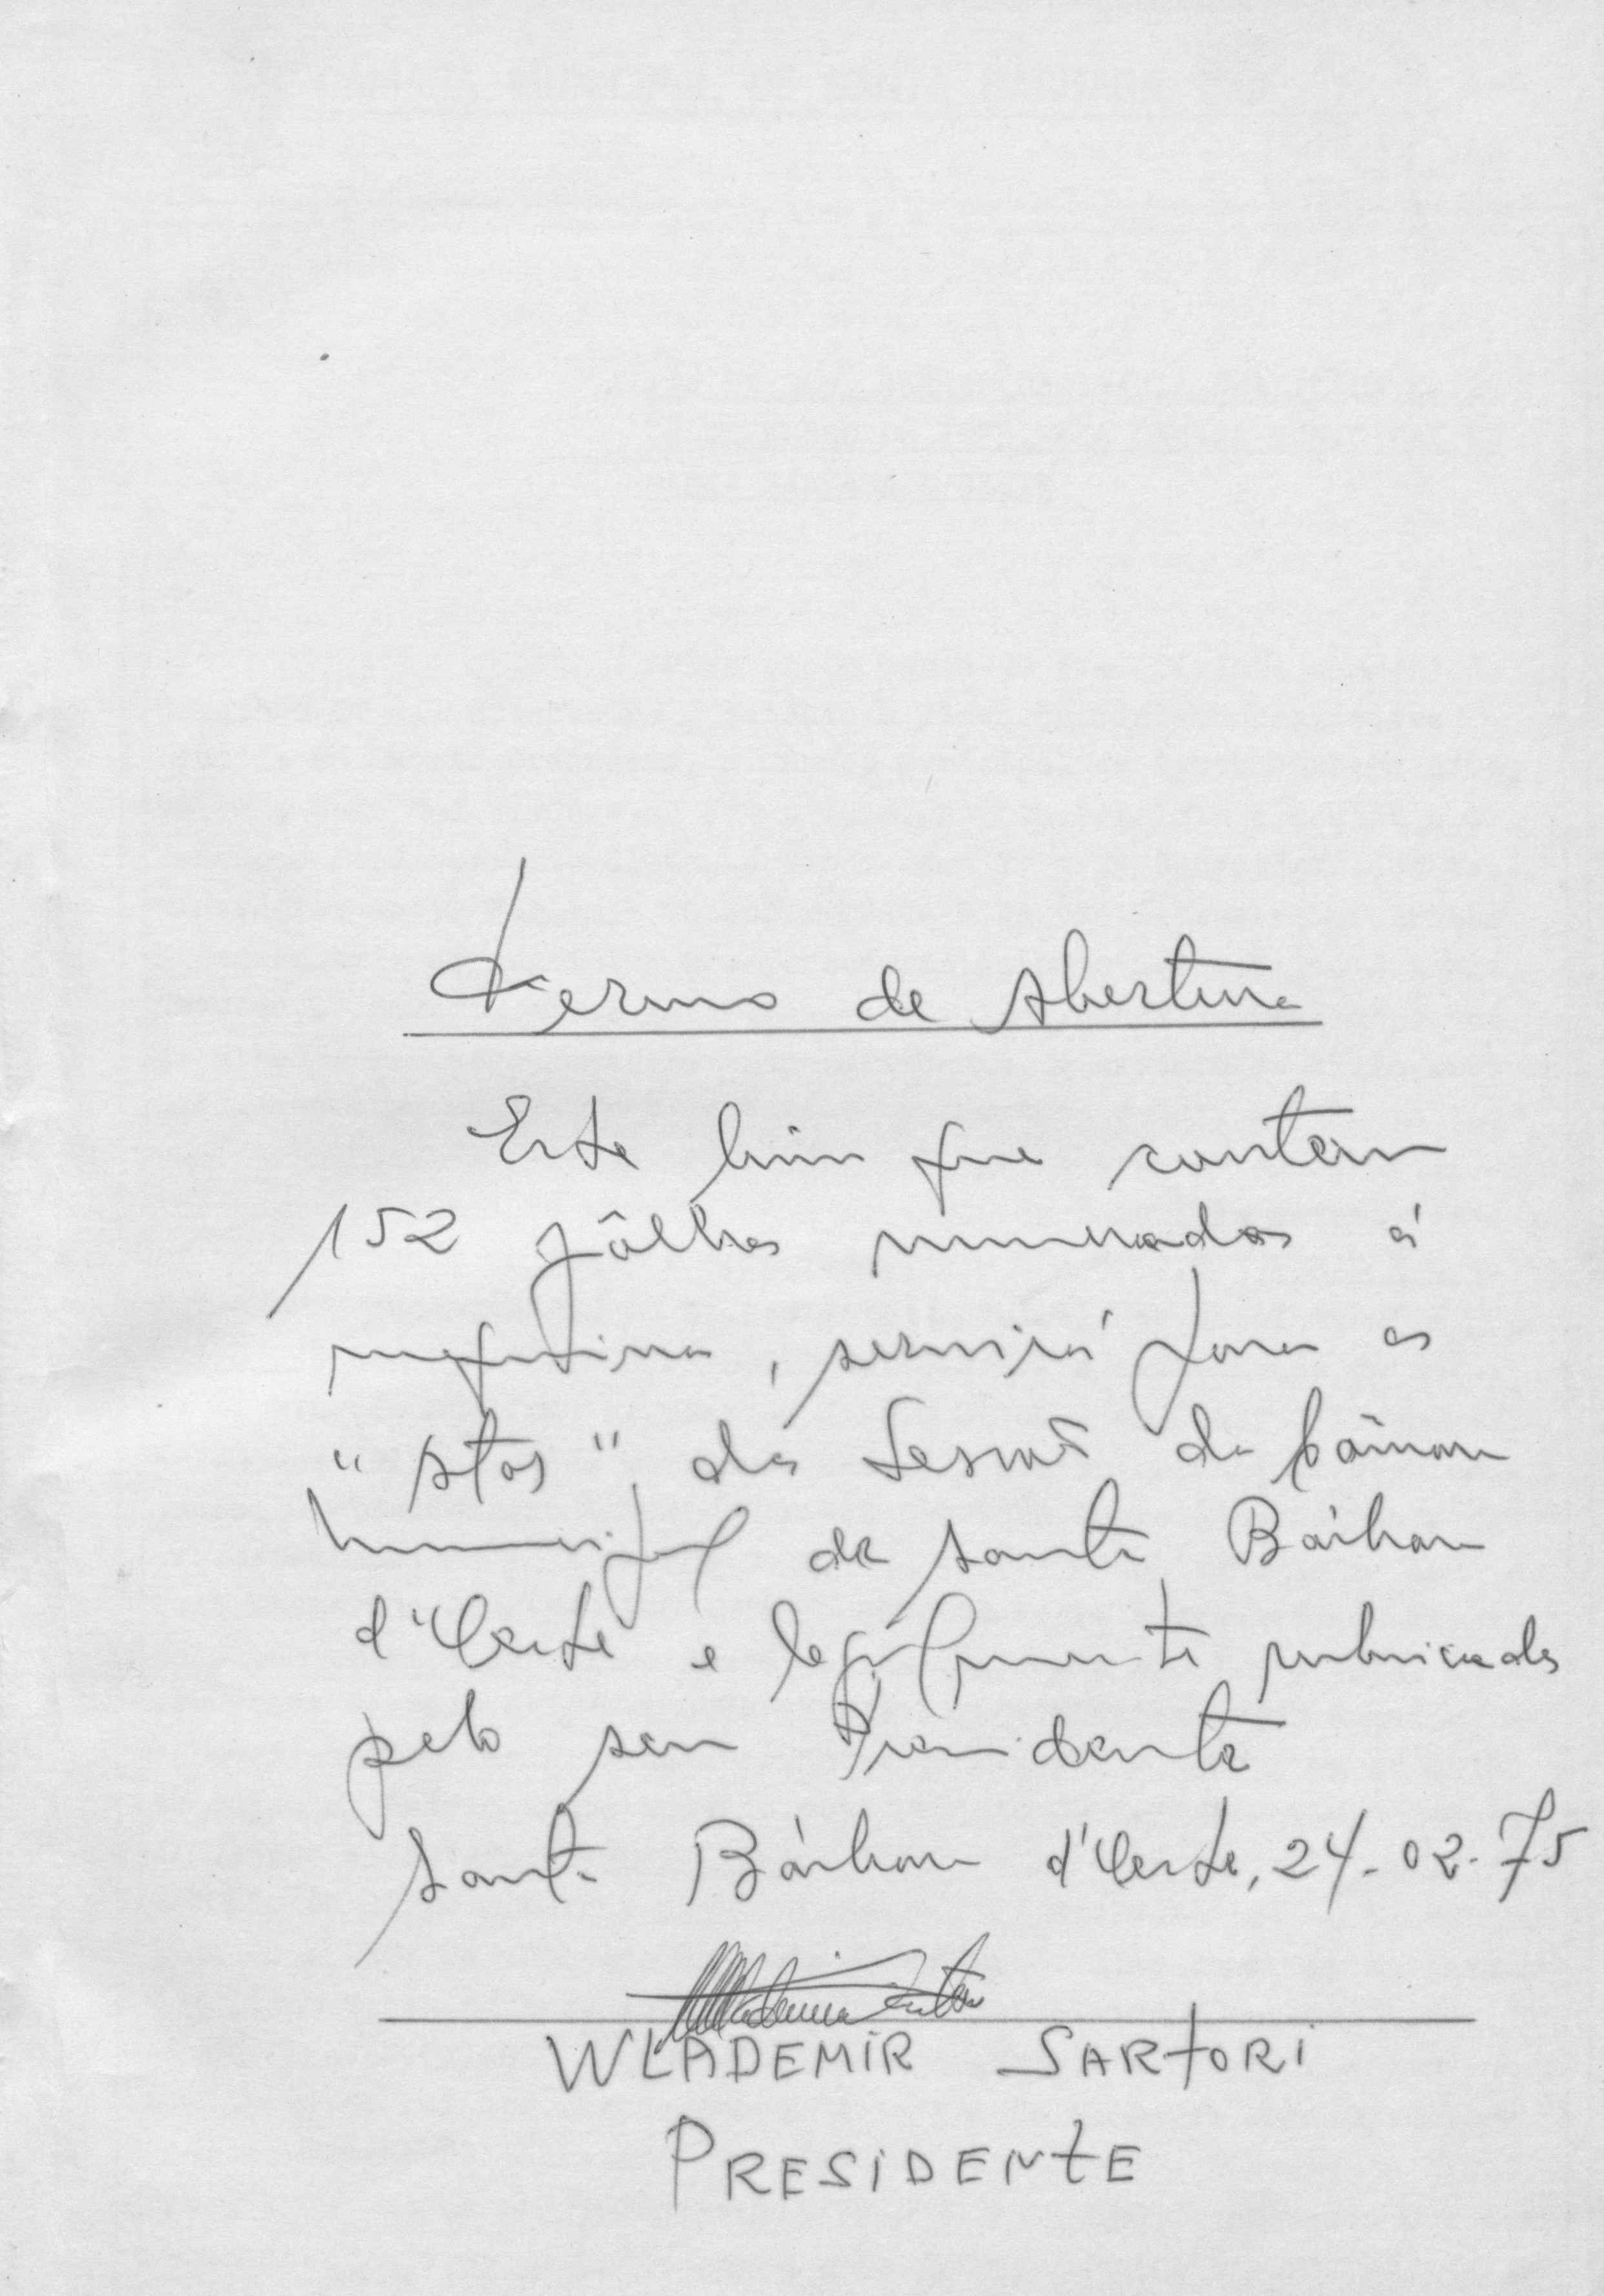 Termo de Abertura
Este livro que contem
152 fôlhas numeradas á
maquina, servirá para as
"Atas" das Sessões da Câmara
Municipal de Santa Bárbara
d'Oeste e legalmente rubricadas
pelo seu Presidente
Santa Bárbara d'Oeste, 24-02-75
WLADEMIR SARTORI
PRESIDENTE